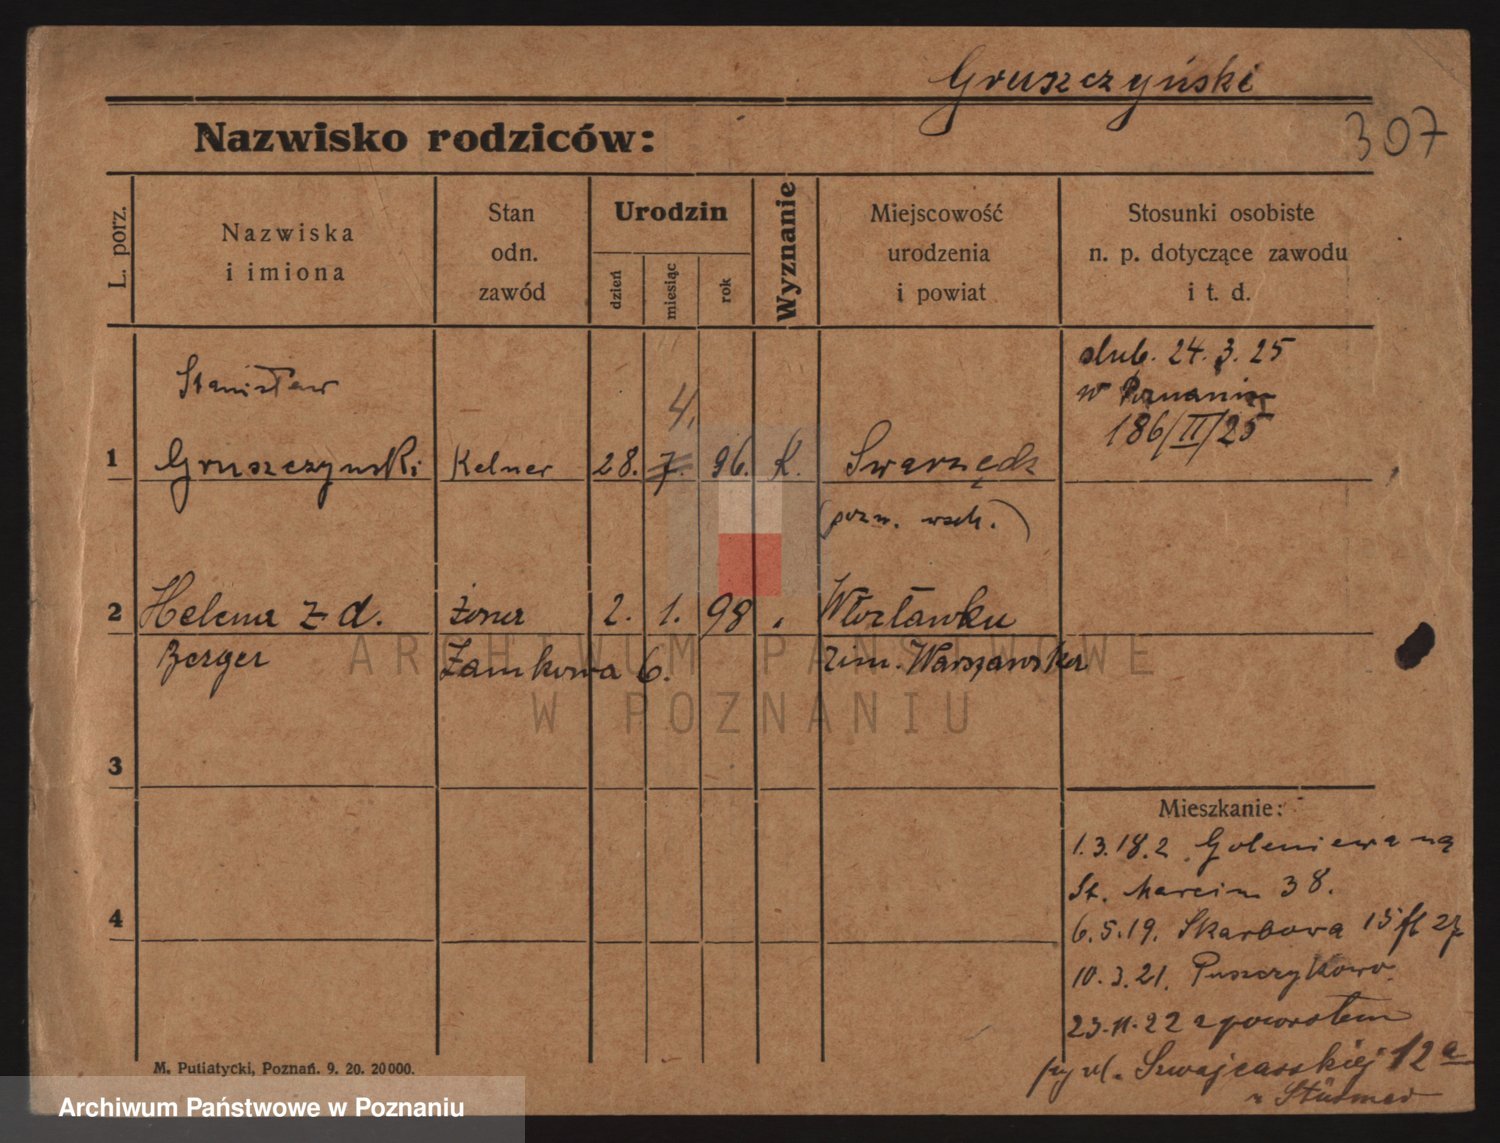 Gruszczyński
307
Nazwisko rodziców:
L. porz.
Nazwiska
i imiona
Stan
odn.
zawód
Urodzin
dzień
miesiąc
rok
Wyznanie
Miejscowość
urodzenia
i powiat
Stosunki osobiste
n. p. dotyczące zawodu
i t. d.
ślub. 24. 3. 25
w Poznaniu
186/II/25
Stanisław
4.
1 Gruszczynski Kelner 28. 7. 96. K. Swarzędz
(pozn. wsch.)
2 Helena z d. żona 2. 1. 98 Włocławku
Berger Zamkowa 6. Warszawska
ARCHIWUM PAŃSTWOWE
W POZNANIU
3
4
Mieszkanie:
1.3.18. z
St. Marcin 38.
6.5.19. Skarbowa 15
10.3.21. Puszczykowo
23.11.22 z powrotem
przy ul. Szwajcarskiej 12a
M. Putiatycki, Poznań. 9. 20. 20000.
Archiwum Państwowe w Poznaniu